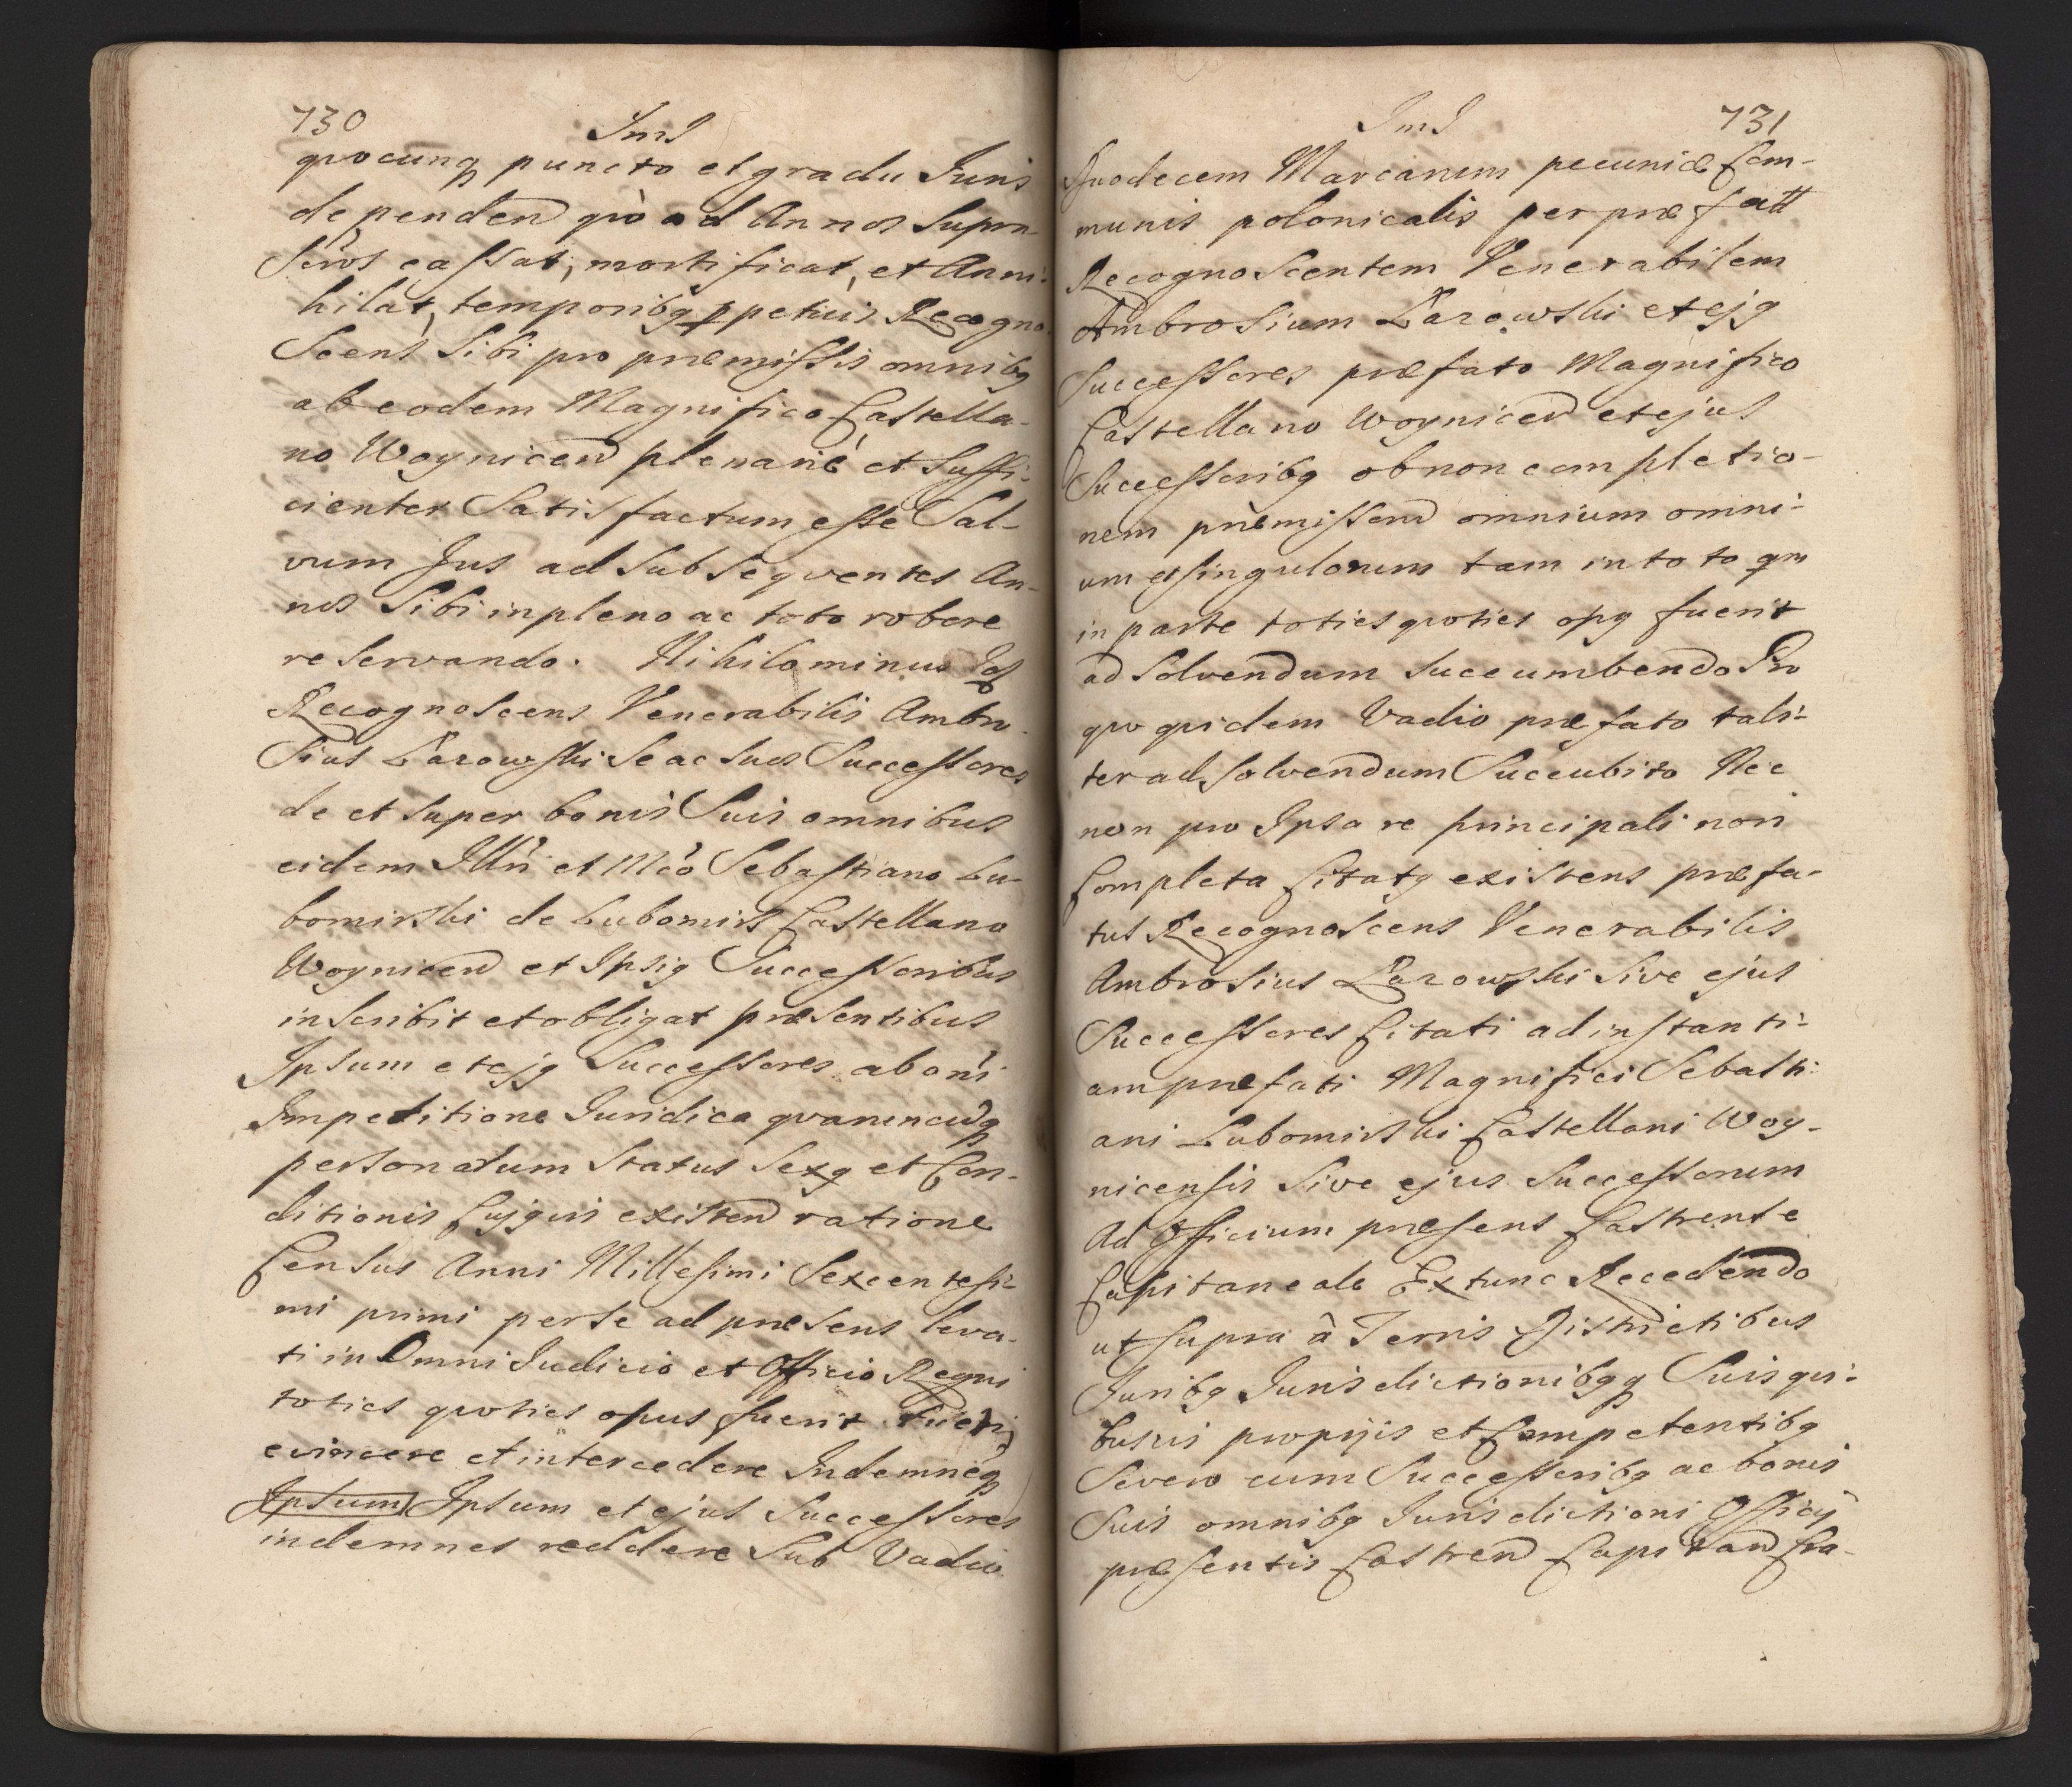 730
Jms
qvocunq puncto et gradu Juris
dependen qvo ad Annos Supra
Scros cassat, mortificat, et Anni:
hilat, temporibq ppetuis Recogno
Scens Sibi pro præmissis omnibq
ab eodem Magnifico Castella-
no Woynicen plenarié et Suffi:
cienter Satisfactum esse Sal-
vum Jus ad Subseqventes An-
nos Sibi in pleno ac toto robore
reservando. Nihilominus Id
Recognoscens Venerabilis Ambro
Sius Łazowski Se ac Suos Successores
de et Super bonis Suis omnibus
eidem Illri et Mco Sebastiano Lu-
bomirski de Lubomirs Castellano
Woynicen et Ipsiq Successoribus
inscribit et obligat præsentibus
Ipsum et ejq Successores ab omi
Impetitione Juridica qvarumcuq
personarum Status Sexq et Con-
ditionis Cujqvis existen ratione
Census Anni Millesimi Sexcentesi-
mi primi per Se ad præsens leva-
ti in Omni Judicio et Officio Regni
toties qvoties opus fuerit tueri
evincere et intercedere Indemneq
Ipsum Ipsum et ejus Successores
indemnes reddere Sub Vadio
Jms
731
Duodecem Marcarum pecuniæ Com-
munis polonicalis per præfatt
Recognoscentem Venerabilem
Ambrosium Łazowski et ejq
Successores præfato Magnifico
Castellano Woynicen et ejus
Successoribq ob non completio-
nem præmissorum omnium omni-
um et singulorum tam in toto qm
in parte toties qvoties opq fuerit
ad Solvendum Succumbendo Pro
qvo qvidem Vadio præfato tali-
ter ad Solvendum Succubito Nec
non pro Ipsa re principali non
Completa Citatq existens præfa-
tus Recognoscens Venerabilis
Ambrosius Łazowski Sive ejus
Successores Citati ad instanti-
am præfati Magnifici Sebasti:
ani Lubomirski Castellani Woy-
nicensis Sive ejus Successorum
Ad Officium præsens Castrense
Capitaneale Extunc Recedendo
ut Supra à Terris Districtibus
Juribq Jurisdictionibqq Suis qvi-
busvis proprijs et Competentibq
Severo cum Successoribq ac bonis
Suis omnibq Jurisdictioni Officij
præsentis Castren Capitan Cra-